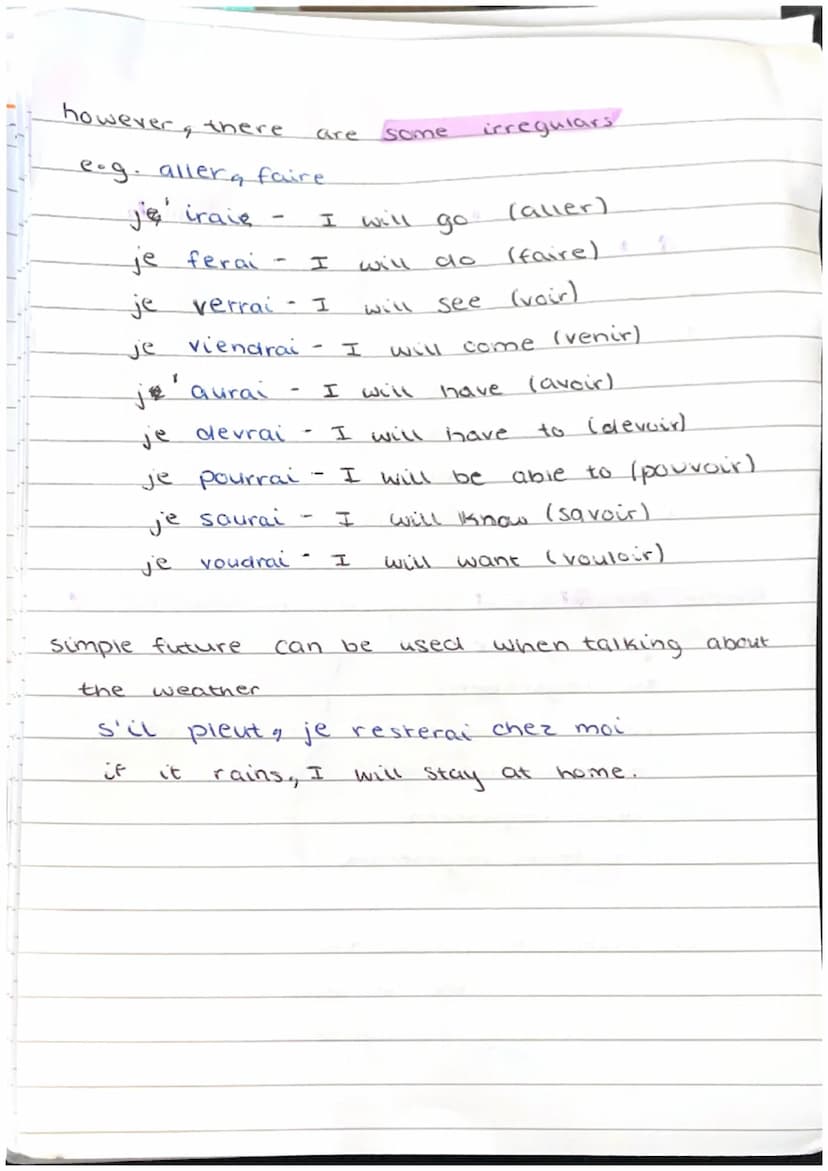 however, there are some irregulars
e.g. aller, faire
j' irai - I will go (aller)
je ferai - I will do (faire)
je verrai - I will see (voir)
je viendrai - I will come (venir)
j' aurai - I will have (avoir)
je devrai - I will have to (devoir)
je pourrai - I will be able to (pouvoir)
je saurai - I will know (savoir)
je voudrai - I will want (vouloir)
simple future can be used when talking about
the weather
s'il pleut, je resterai chez moi
if it rains, I will stay at home.